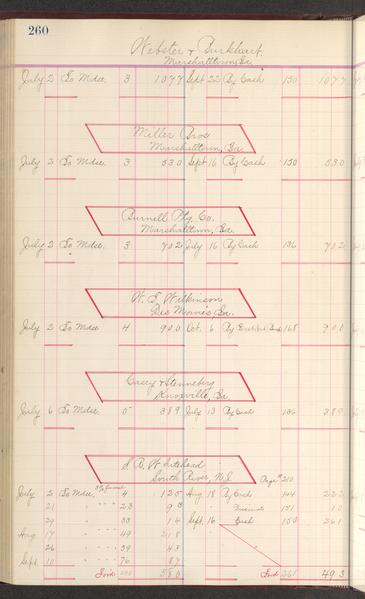 260
Webster & Burkhart.
Marshalltown, Ia.
July 2 To Mdse. 3 1077 Sept 22 By Cash 150 1077
Miller Bros
Marshalltown, Ia.
July 2 To Mdse. 3 530 Sept 16 By Cash 150 530
Burnell Mfg. Co.
Marshalltown, Ia.
July 2 To Mdse. 3 702 July 16 By Cash 136 702
W. S. Wilkinson
Des Moines, Ia.
July 2 To Mdse. 4 900 Oct. 6 By 168 900
Casey &
Knoxville, Ia
July 6 To Mdse. 5 389 July 13 By Cash 136 389
Whitehead
South River, N.J.
Page 210
July 2 To Mdse. 4 125 Aug 18 By Cash 144 222
21 " 23 93 " Discount 151 10
29 " 33 14 Sept. 16 Cash 150 261
Aug 17 " 49 218
26 " 59 43
Sept. 10 " 76 87
Ford 580 Ford 261 493